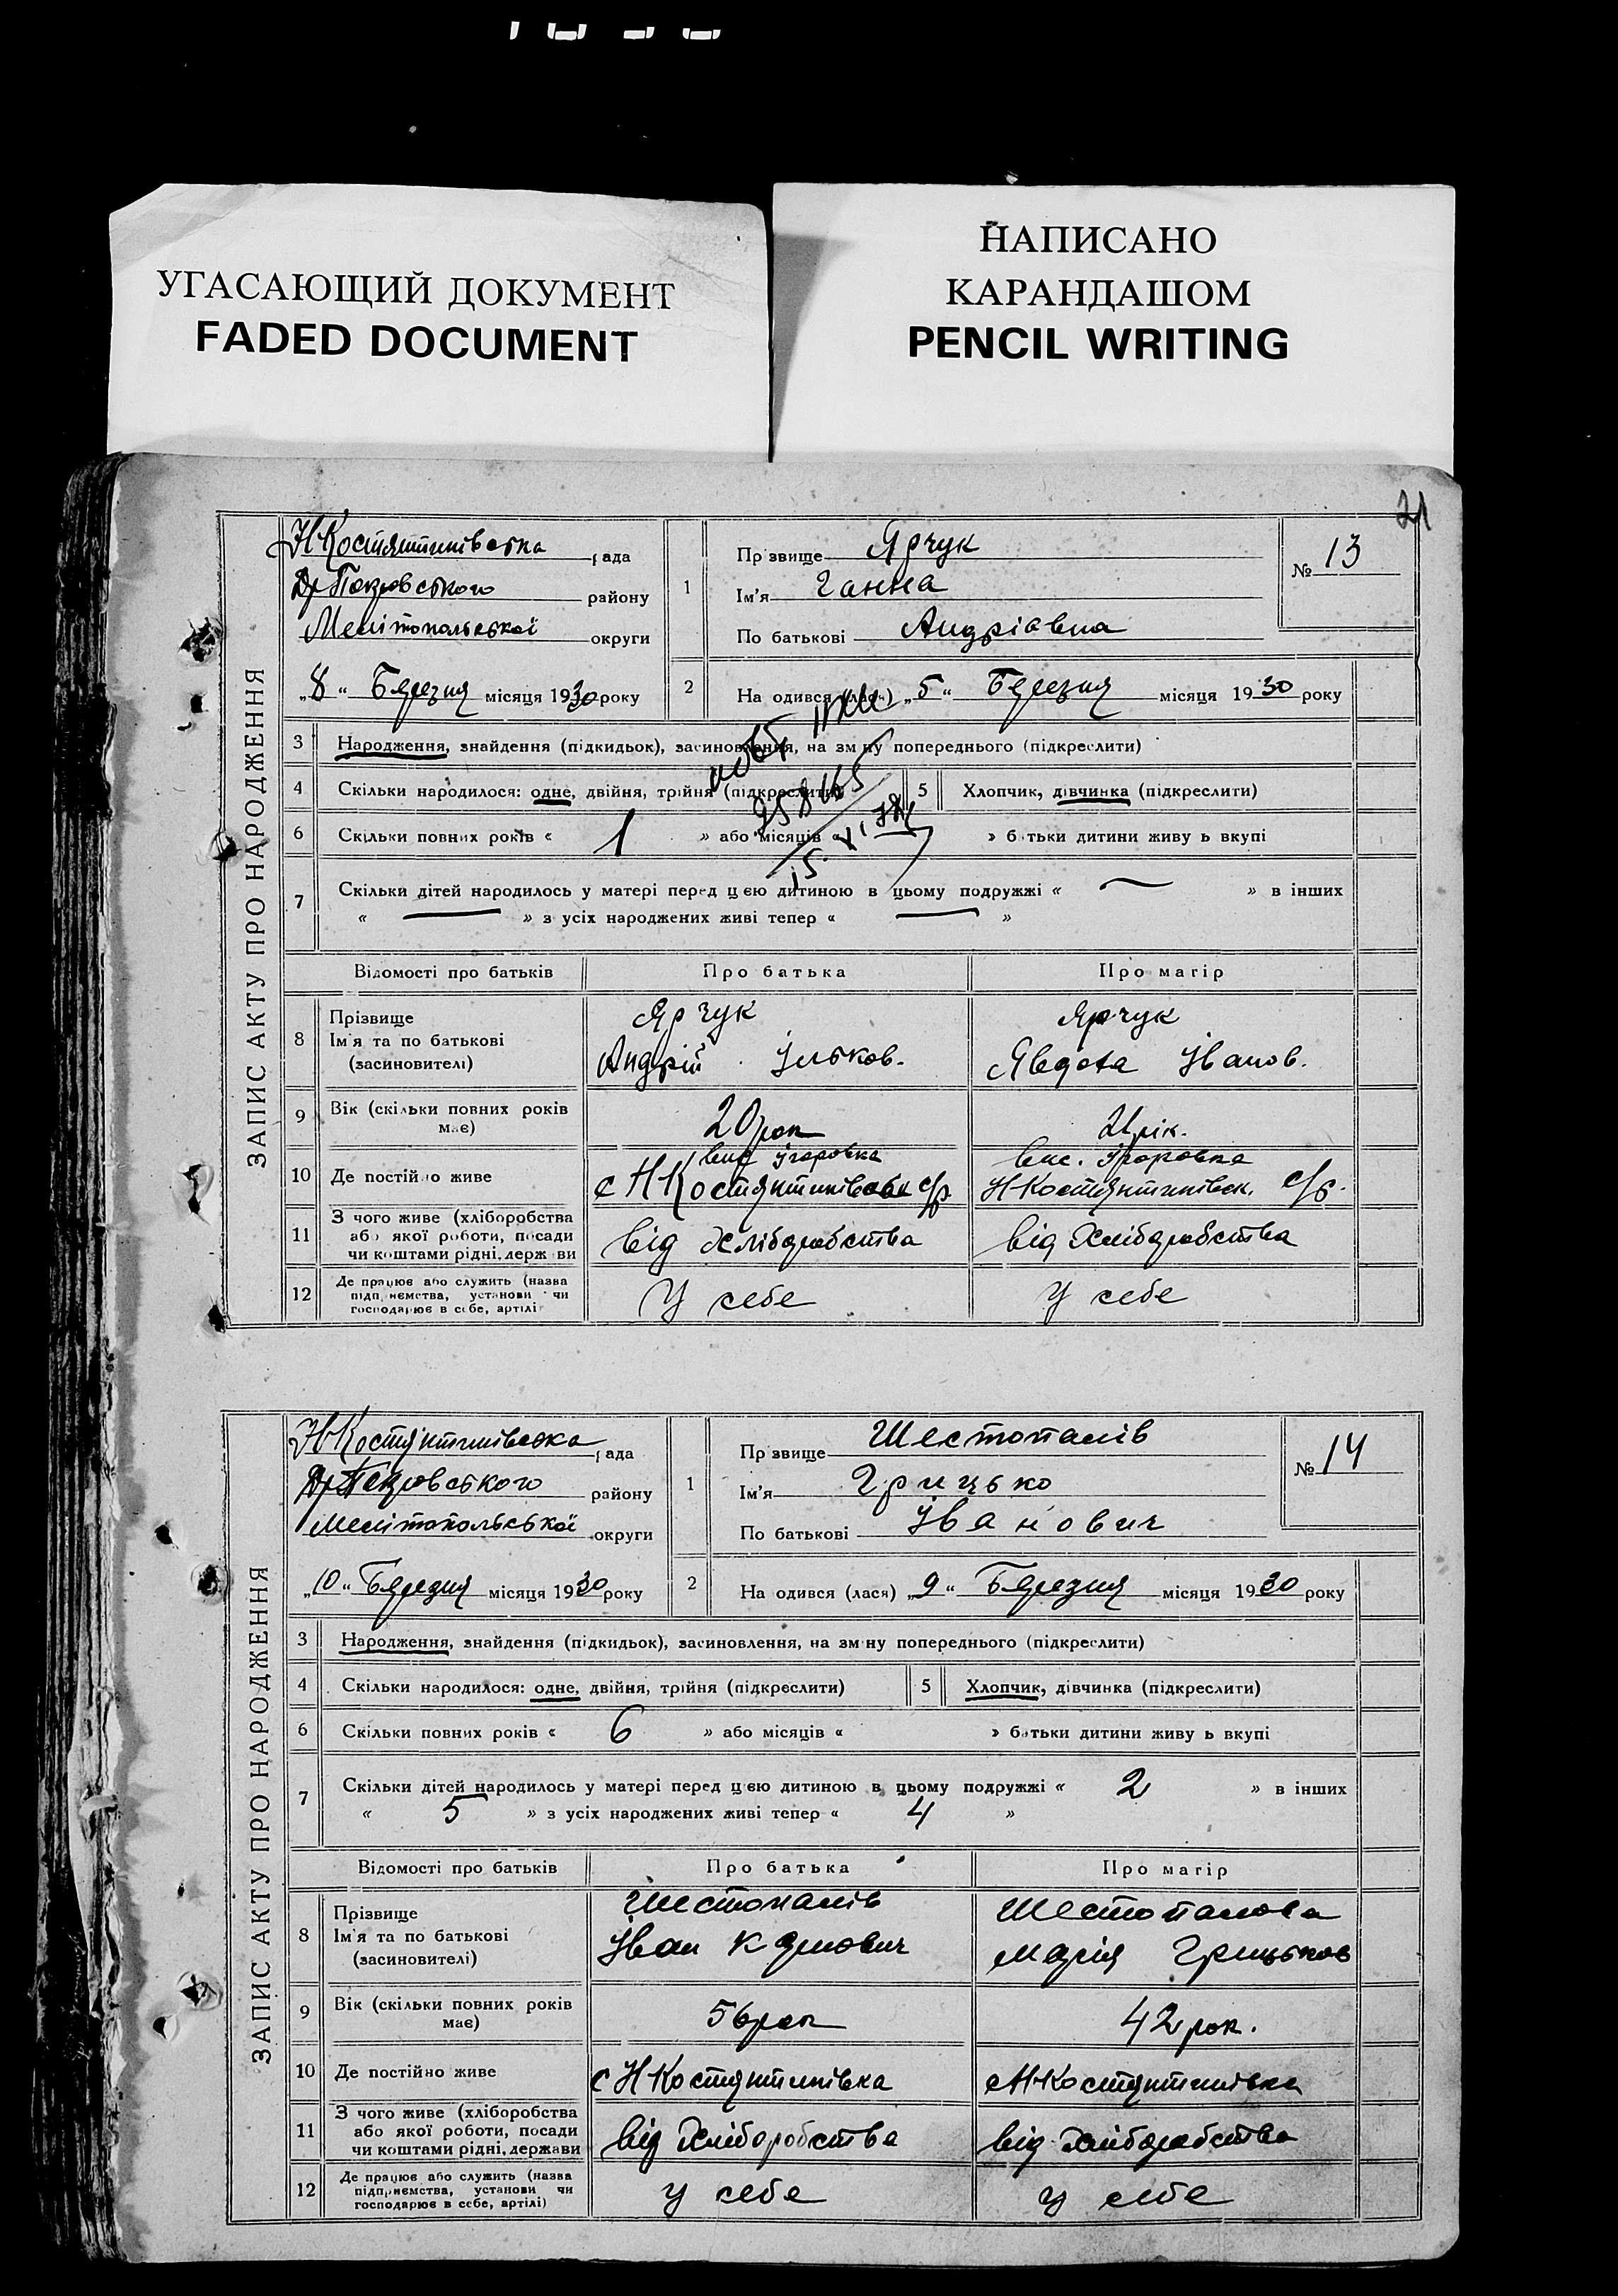 УГАСАЮЩИЙ ДОКУМЕНТ
FADED DOCUMENT
НАПИСАНО
КАРАНДАШОМ
PENCIL WRITING
21
ЗАПИС АКТУ ПРО НАРОДЖЕННЯ
НКостянтинівська рада
Др Покровського району
Мелітопольської округи
„8“ Березня місяця 1930 року
1 Прізвище Ярчук
Ім'я Ганна
По батькові Андріавна
№ 13
2 Народився (лася) „5“ Березня місяця 1930 року
3 Народження, знайдення (підкидьок), засиновлення, на зміну попереднього (підкреслити)
4 Скільки народилося: одне, двійня, трійня (підкреслити)
5 Хлопчик, дівчинка (підкреслити)
6 Скільки повних років « 1 » або місяців « » батьки дитини живуть вкупі
7 Скільки дітей народилось у матері перед цією дитиною в цьому подружжі « — » в інших
« — » з усіх народжених живі тепер « — »
Відомості про батьків Про батька Про матір
8 Прізвище
Ім'я та по батькові
(засиновителі)
Ярчук
Андрій Ільков.
Ярчук
Явдоха Іванов.
9 Вік (скільки повних років має)
20 рок
21 рік.
10 Де постійно живе
вис Ігоровка
с НКостянтинівськ с/р.
вис. Ігоровка
НКостянтинівськ. с/р.
11 З чого живе (хліборобства
або якої роботи, посади
чи коштами рідні, держави
від Хліборобства
від Хліборобства
12 Де працює або служить (назва
підприємства, установи чи
господарює в себе, артілі
У себе
У себе
ЗАПИС АКТУ ПРО НАРОДЖЕННЯ
НКостянтинівська рада
Др Покровського району
Мелітопольської округи
„10“ Березня місяця 1930 року
1 Прізвище Шестопалів
Ім'я Грицько
По батькові Іванович
№ 14
2 Народився (лася) „9“ Березня місяця 1930 року
3 Народження, знайдення (підкидьок), засиновлення, на зміну попереднього (підкреслити)
4 Скільки народилося: одне, двійня, трійня (підкреслити)
5 Хлопчик, дівчинка (підкреслити)
6 Скільки повних років « 6 » або місяців « » батьки дитини живуть вкупі
7 Скільки дітей народилось у матері перед цією дитиною в цьому подружжі « 2 » в інших
« 5 » з усіх народжених живі тепер « 4 »
Відомості про батьків Про батька Про матір
8 Прізвище
Ім'я та по батькові
(засиновителі)
Шестопалів
Іван
Шестопалова
Марія Грицьков
9 Вік (скільки повних років має)
56 рок
42 рок.
10 Де постійно живе
с НКостянтинівка
с НКостянтинівка
11 З чого живе (хліборобства
або якої роботи, посади
чи коштами рідні, держави
від Хліборобства
від Хліборобства
12 Де працює або служить (назва
підприємства, установи чи
господарює в себе, артілі)
У себе
У себе